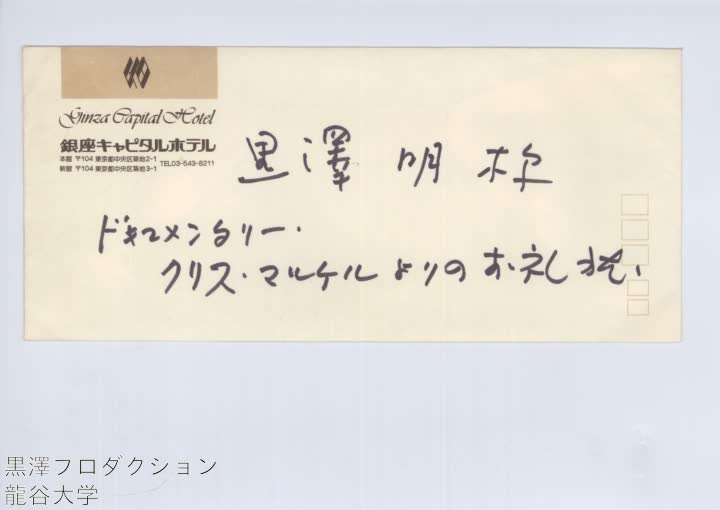 Ginza Capital Hotel
銀座キャピタルホテル
本館 〒104 東京都中央区築地2-1
新館 〒104 東京都中央区築地3-1
TEL03-543-8211
黒澤 明 様
ドキュメンタリー・
クリス・マルケル よりの お礼
黒澤プロダクション
龍谷大学